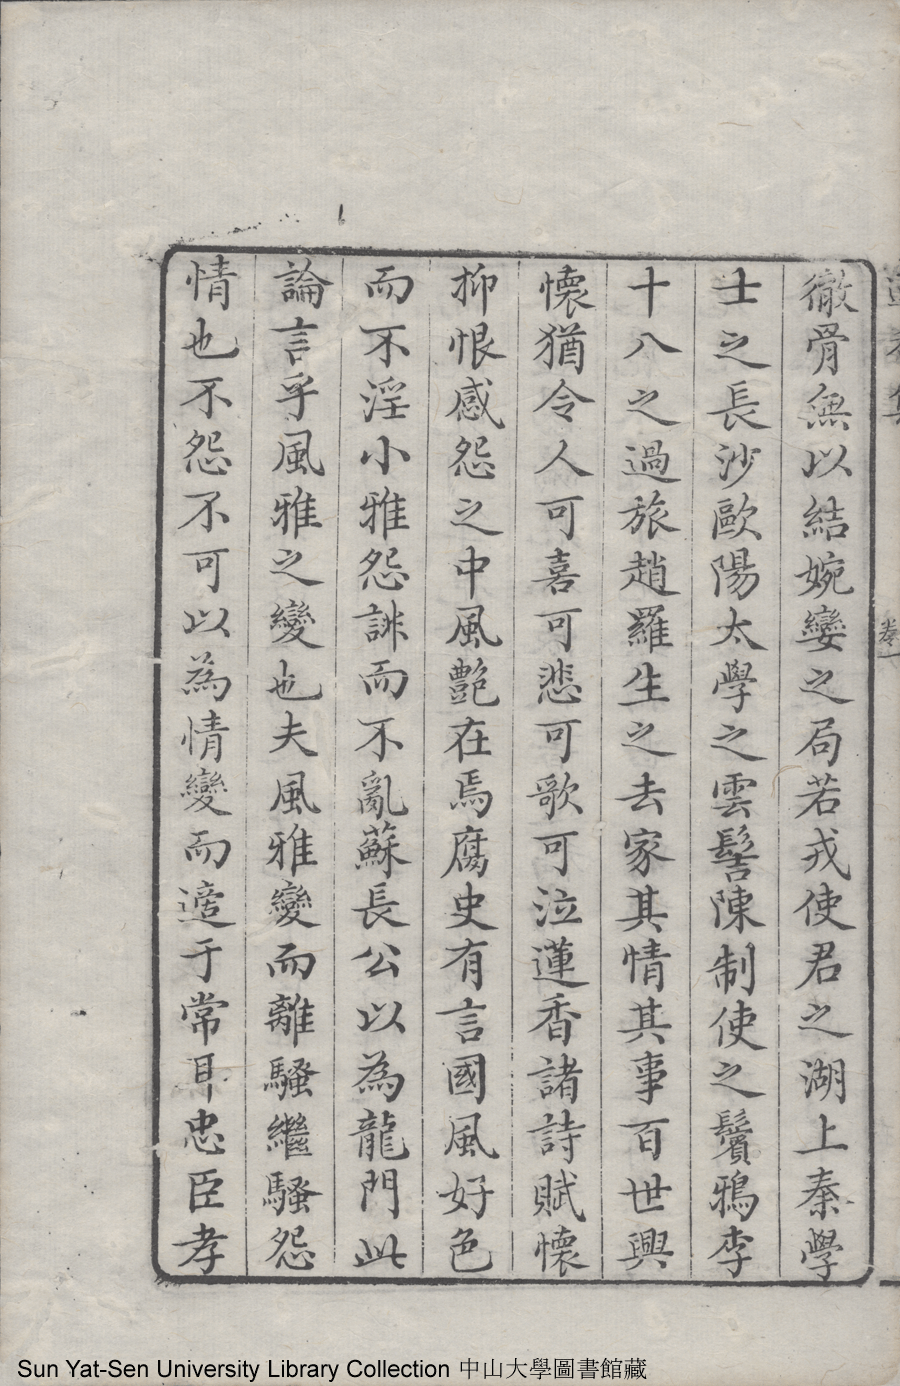 徹骨無以結婉孌之局若戎使君之湖上秦學
士之長沙歐陽太學之雲髻陳制使之鬢鴉李
十八之過旅趙羅生之去家其情其事百世興
懷猶令人可喜可悲可歌可泣蓮香諸詩賦懷
抑恨感怨之中風艷在焉腐史有言國風好色
而不淫小雅怨誹而不亂蘇長公以為龍門此
論言乎風雅之變也夫風雅變而離騷繼騷怨
情也不怨不可以為情變而適于常耳忠臣孝
卷一
Sun Yat-Sen University Library Collection 中山大學圖書館藏